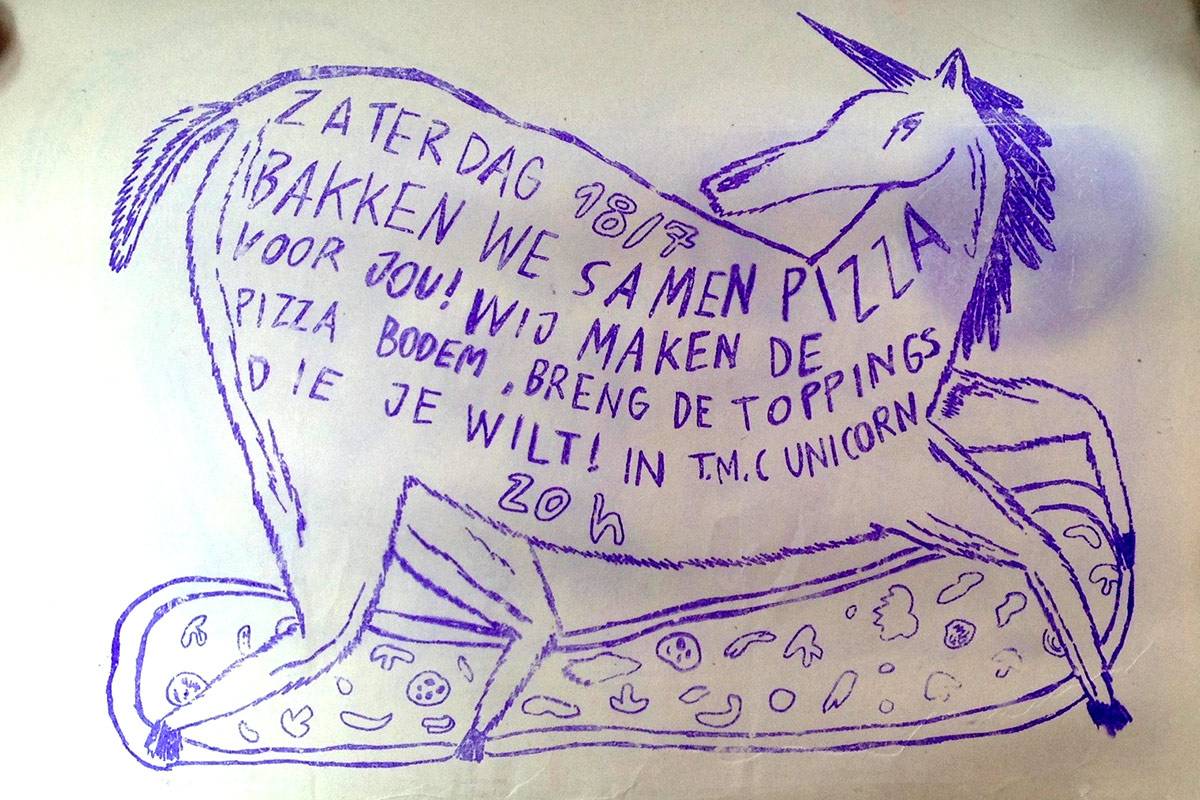 ZATERDAG 18/7
BAKKEN WE SAMEN PIZZA
VOOR JOU! WIJ MAKEN DE
PIZZA BODEM. BRENG DE TOPPINGS
DIE JE WILT! IN T.M.C UNICORN
20 h